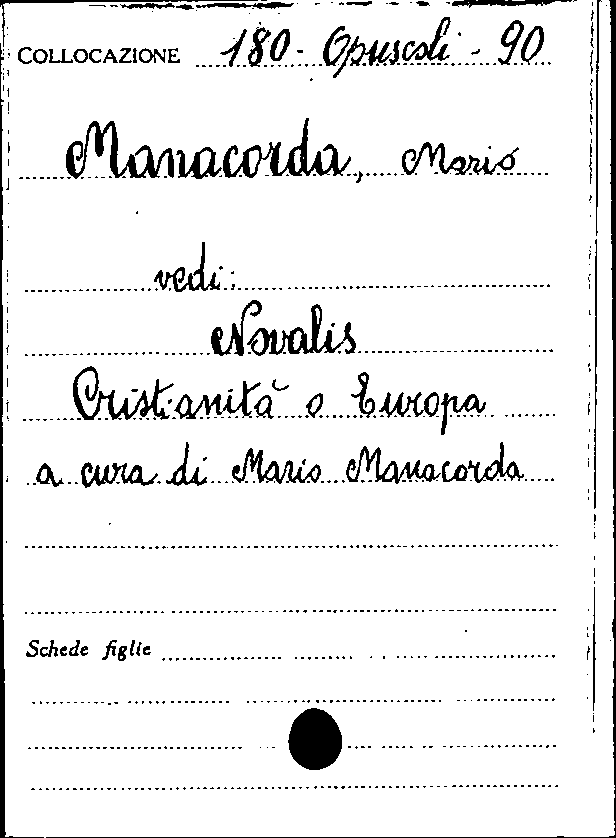 COLLOCAZIONE 180 - Opuscoli - 90
Manacorda, Mario
vedi:
Novalis
Cristianità o Europa
a cura di Mario Manacorda
Schede figlie